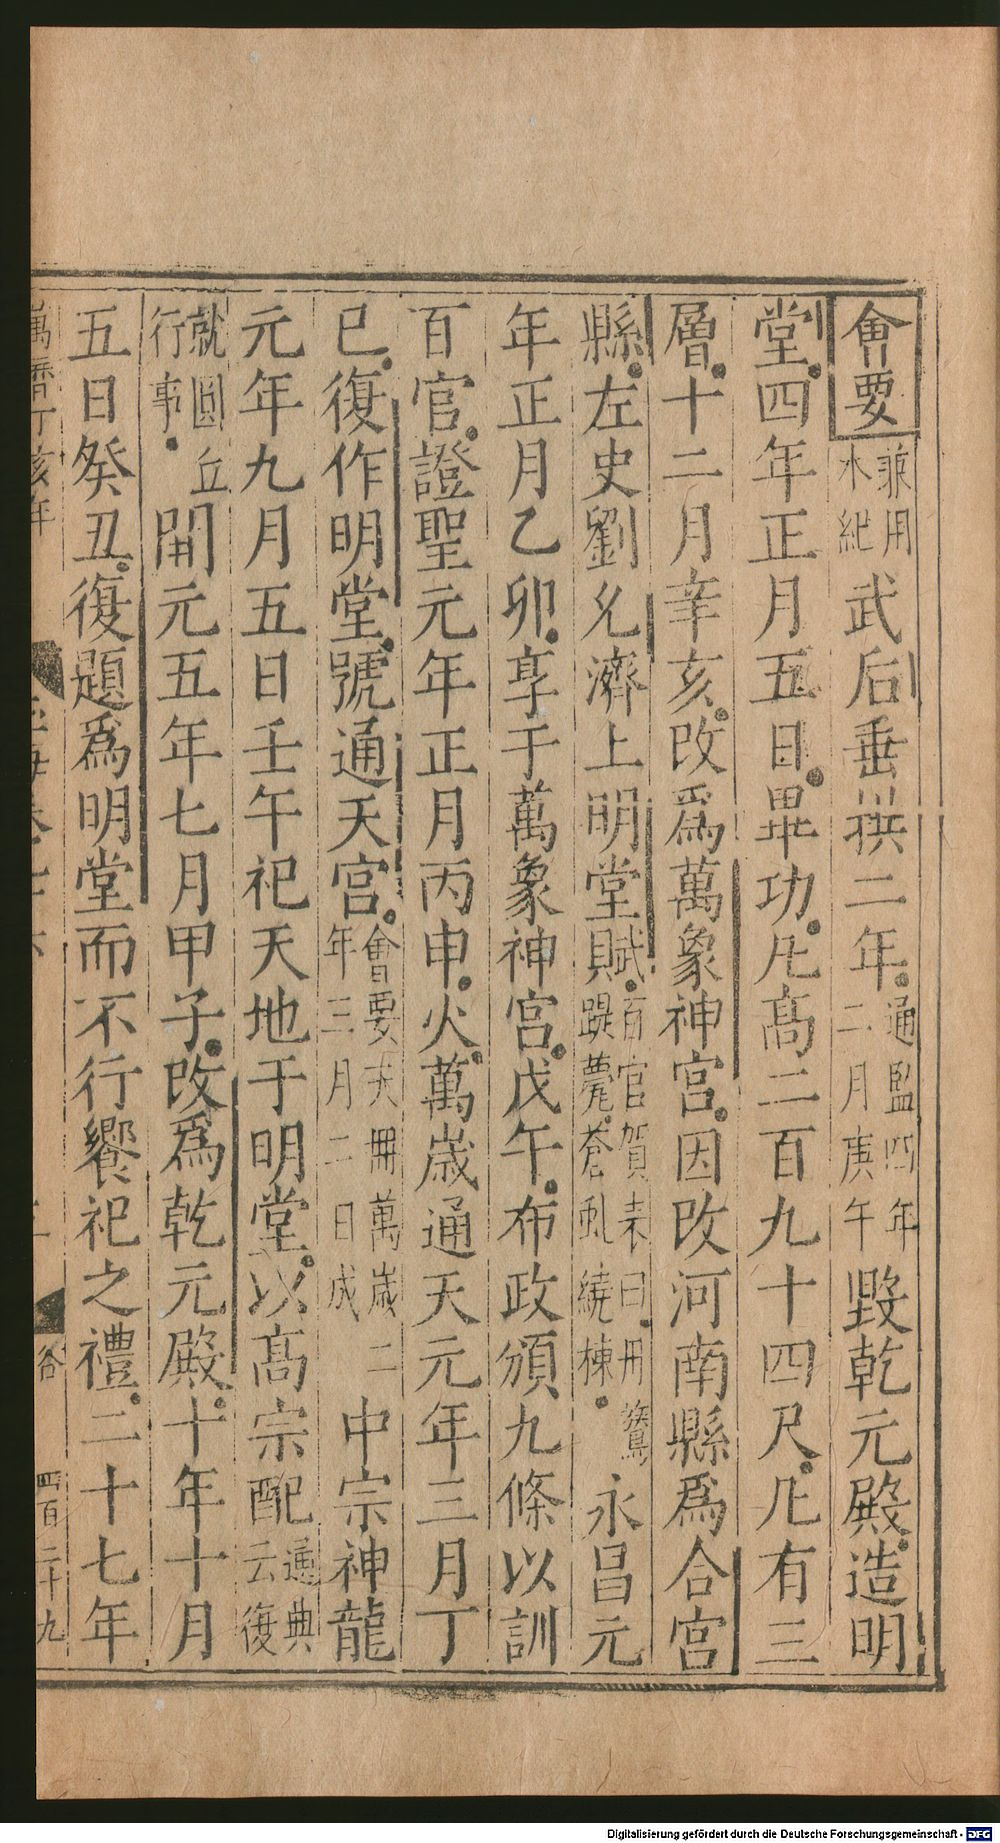 會要兼用本紀武后垂拱二年通監四年二月庚午毀乾元殿造明
堂四年正月五日畢功凡高二百九十四尺凡有三
層十二月辛亥改爲萬象神宮因改河南縣爲合宮
縣左史劉允濟上明堂賦百官賀表曰丹鷟踶甍蒼虬繞棟永昌元
年正月乙卯享于萬象神宮戊午布政頒九條以訓
百官證聖元年正月丙申火萬歲通天元年三月丁
巳復作明堂號通天宮會要天冊萬歲二年三月二日成中宗神龍
元年九月五日壬午祀天地于明堂以高宗配通典云復
就圓丘行事開元五年七月甲子改爲乾元殿十年十月
五日癸丑復題爲明堂而不行饗祀之禮二十七年
萬曆丁亥年
四百二十九
Digitalisierung gefördert durch die Deutsche Forschungsgemeinschaft - DFG